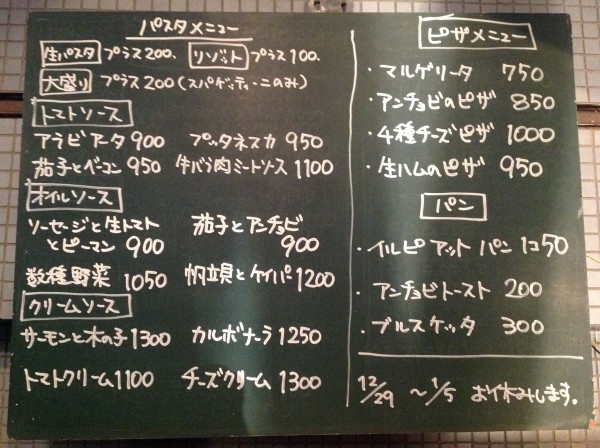 パスタメニュー
生パスタ プラス200、 リゾット プラス100、
大盛り プラス200(スパゲッティーニのみ)
トマトソース
アラビアータ 900 プッタネスカ 950
茄子とベーコン 950 牛バラ肉ミートソース 1100
オイルソース
ソーセージと生トマト
とピーマン 900
茄子とアンチョビ
900
数種野菜 1050 帆立貝とケイパー 1200
クリームソース
サーモンと木の子 1300 カルボナーラ 1250
トマトクリーム 1100 チーズクリーム 1300
ピザメニュー
・マルゲリータ 750
・アンチョビのピザ 850
・4種チーズピザ 1000
・生ハムのピザ 950
パン
・イルピアット パン 1コ50
・アンチョビトースト 200
・ブルスケッタ 300
12/29 〜 1/5 お休みします。